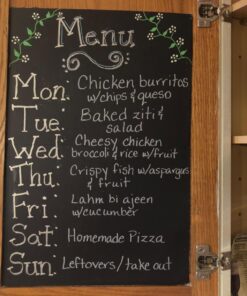 Menu
Mon: Chicken burritos
w/chips & queso
Tue: Baked ziti &
salad
Wed: Cheesy chicken
broccoli & rice w/fruit
Thu: Crispy fish w/aspargus
& fruit
Fri: Lahm bi ajeen
w/cucumber
Sat: Homemade Pizza
Sun: Leftovers/take out